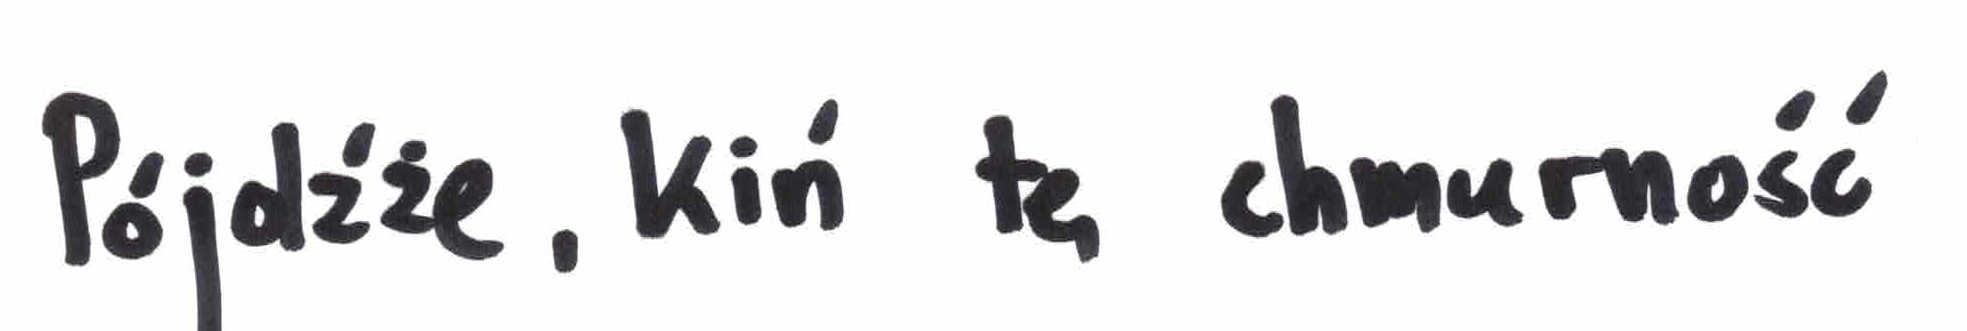 Pójdźże, kiń tę chmurność